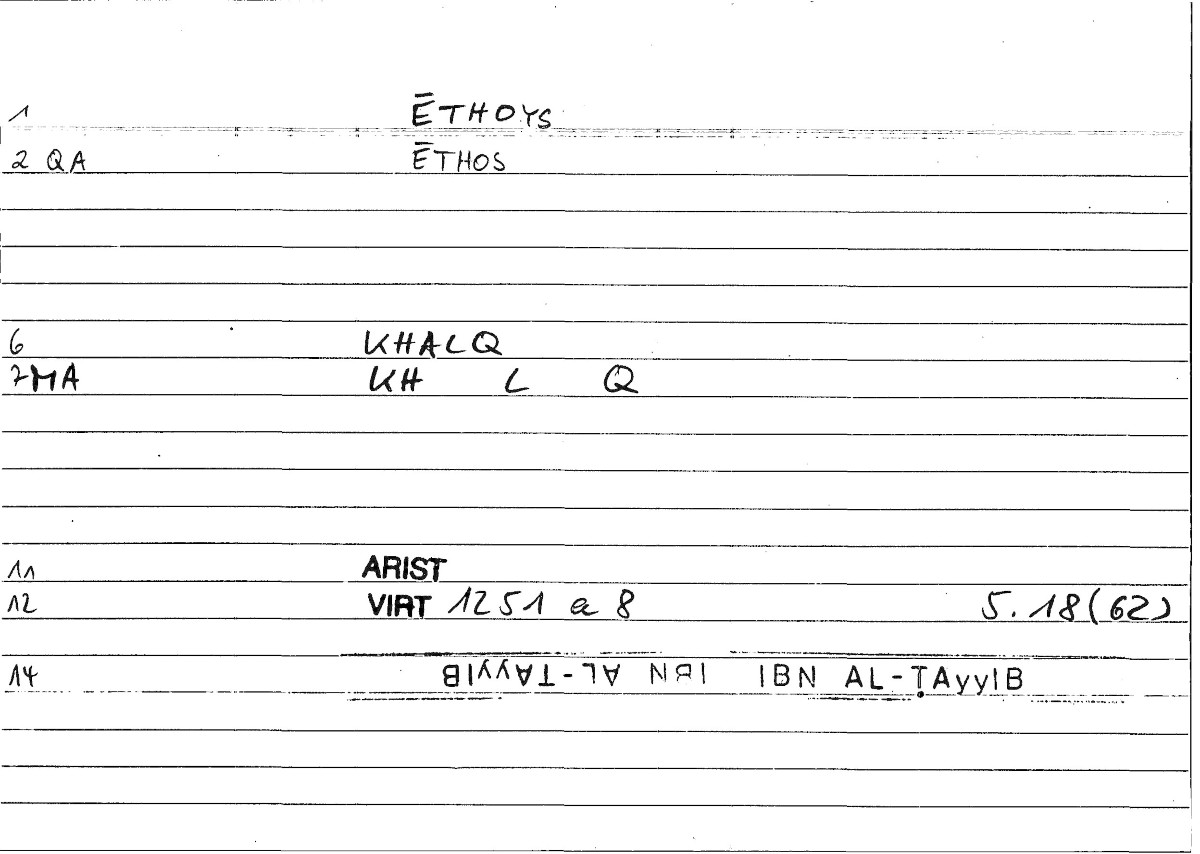 1 ĒTHOYS
2 QA ĒTHOS
6 KHALQ
7MA KH L Q
11 ARIST
12 VIRT 1251 a 8 5.18(62)
14 IBN AL-TAyyIB IBN AL-ṬAyyIB